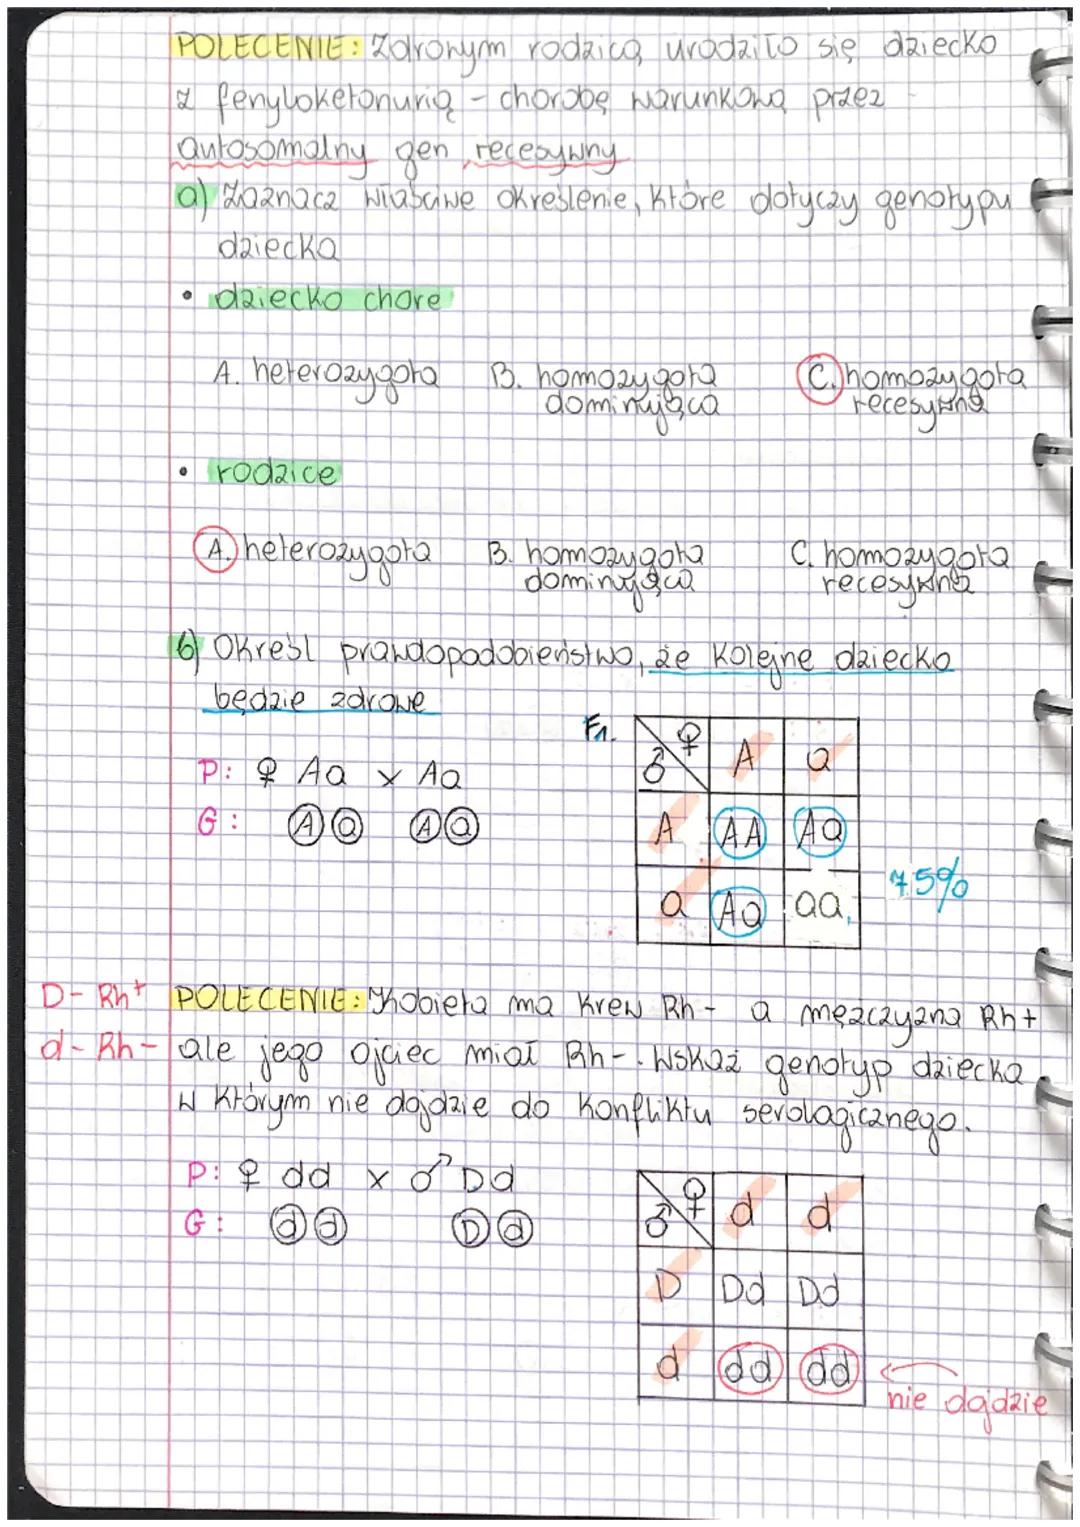 POLECENIE: Zdrowym rodzicą urodziło się dziecko
z fenyloketonurią - chorobę warunkową przez
autosomalny gen recesywny
a) Zaznacz właściwe określenie, które dotyczy genotypu
dziecka
• dziecko chore
A. heterozygota B. homozygota dominująca C. homozygota recesywna
• rodzice
A. heterozygota B. homozygota dominująca C. homozygota recesywna
b) Określ prawdopodobieństwo, że kolejne dziecko
będzie zdrowe
P: ♀ Aa x Aa
G: A a A a
F1.
♂ ♀ A a
A AA Aa
a Aa aa
75%
D - Rh+
d - Rh-
POLECENIE: Kobieta ma krew Rh- a mężczyzna Rh+
ale jego ojciec miał Rh-. Wskaż genotyp dziecka
w którym nie dojdzie do konfliktu serologicznego.
P: ♀ dd x ♂ Dd
G: d d D d
♂ ♀ d d
D Dd Dd
d dd dd
nie dojdzie